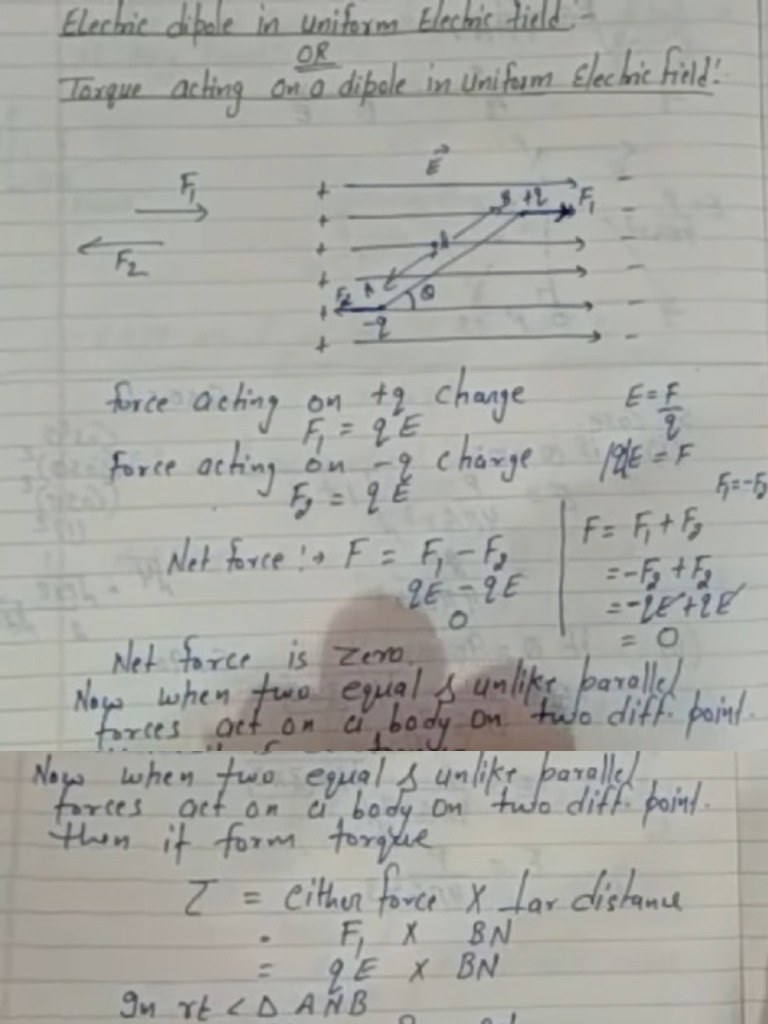 Electric dipole in uniform Electric field:-
OR
Torque acting on a dipole in uniform Electric field:
E
F₁
F₂
+ + + + + +
- - - - - -
B +q F₁
F₂ A θ
-q
force acting on +q change
F₁ = qE
force acting on -q charge
F₂ = qE
E = F/q
qE = F
F₁=-F₂
Net force :→ F = F₁ - F₂
qE - qE
0
F = F₁ + F₂
= -F₂ + F₂
= -qE + qE
= 0
Net force is zero.
Now when two equal & unlike parallel
forces act on a body on two diff. point.
Now when two equal & unlike parallel
forces act on a body on two diff. point.
then it form torque
τ = either force X ⊥ar distance
F₁ X BN
= qE X BN
In rt < Δ ANB